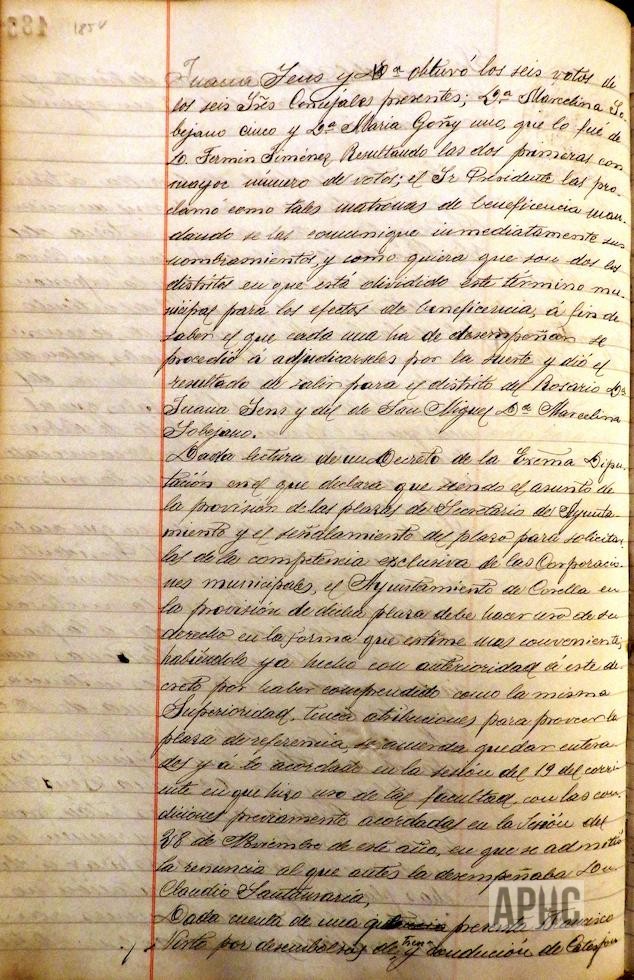 185V
Juana Sens y Dª obtuvó los seis votos de
los seis Srės Concejales presentes; D.ª Marcelina So-
bejano cinco y D.ª Maria Goñy uno, que lo fué de
D. Fermin Jiménez Resultando las dos primeras con
mayor número de votos; el Sr Presidente las pro-
clamó como tales matronas de beneficencia man-
dando se las comunique inmediatamente sus
nombramientos y como quiera que son dos los
distritos en que está dividido este término mu-
nicipal para los efectos de beneficencia, á fin de
saber el que cada una ha de desempeñar se
procedió á adjudicarseles por la suerte y dió el
resultado de salir para el distrito del Rosario D.ª
Juana Sens y del de San Miguel D.ª Marcelina
Sobejano.
Dada lectura de un Decreto de la Exema Dipu-
tación en el que declara que siendo el asunto de
la provisión de las plazas de Secretario de Ayunta-
miento y el señalamiento del plazo para solicitar-
las de la competencia exclusiva de las Corporacio-
nes municipales, el Ayuntamiento de Corella en
la provisión de dicha plaza debe hacer uso de su
derecho en la forma que estime mas conveniente,
habiéndolo ya hecho con anterioridad á este de-
creto por haber comprendido como la misma
Superioridad, tenia atribuciones para proveer la
plaza de referencia, se acuerda quedar entera-
dos y á lo acordado en la sesión del 19 del corri-
ente en que hizo uso de tal facultad, con las con-
diciones previamente acordadas en la Sesión del
28 de Noviembre de este año, en que se admitió
la renuncia al que antes la desempeñaba Don
Claudio Santamaria,
Dada cuenta de una presenta Francisco
Virto por desembolsos de y conducción de
APHC